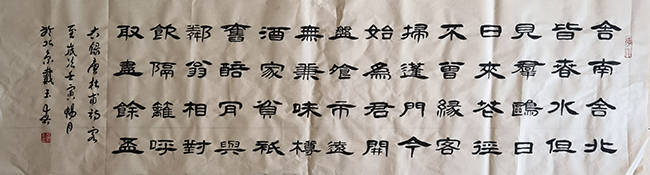 舍南舍北
皆春水但
見羣鷗日
日來花徑
不曾緣客
掃蓬門今
始為君開
盤飧市遠
無兼味樽
酒家貧祇
舊醅肎與
鄰翁相對
飲隔籬呼
取盡餘盃
右錄唐杜甫詩客
至歲次壬寅陽月
於北京戴玉